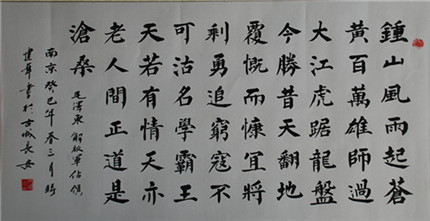 鍾山風雨起蒼
黃百萬雄師過
大江虎踞龍盤
今勝昔天翻地
覆慨而慷宜將
剩勇追窮寇不
可沽名學霸王
天若有情天亦
老人間正道是
滄桑
毛澤東解放軍佔領
南京癸巳年春三月時
建華書於古城長安